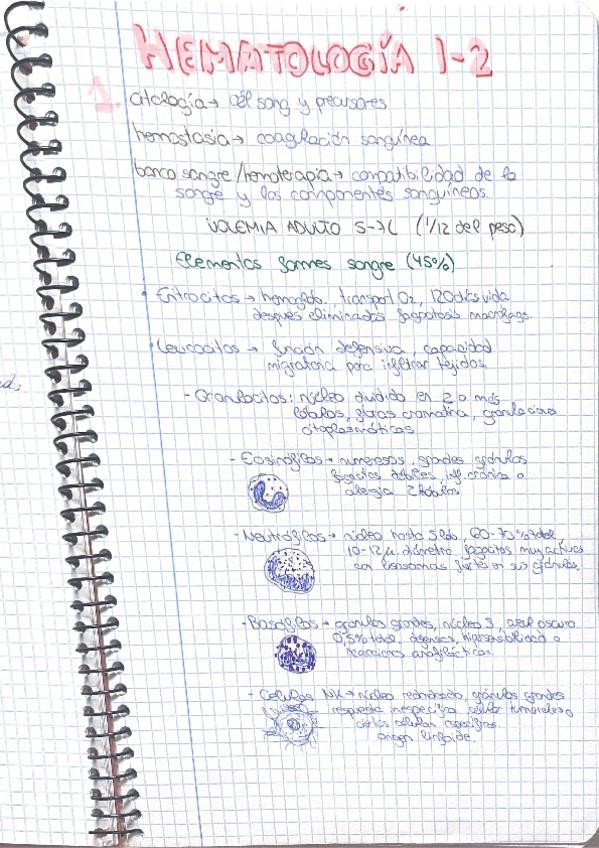 HEMATOLOGÍA 1-2
1.
citología → cél sang y precusores
hemostasia → coagulación sanguínea
banco sangre/hemoterapia → compatibilidad de la
sangre y los componentes sanguíneos.
VOLEMIA ADULTO 5-7L (1/12 del peso)
Elementos formes sangre (45%)
Eritrocitos → hemoglob. transport O2, 120 días vida
después eliminados fagocitosis macrófago.
Leucocitos → función defensiva, capacidad
migratoria para infiltrar tejidos.
- Granulocitos: núcleo dividido en 2 o más
lóbulos, fibras cromatina, granulaciones
citoplasmáticas
- Eosinófilos → numerosos, grandes gránulos
fagocitos débiles, inf. crónica o
alergia 2 lóbulos
- Neutrófilos → núcleo hasta 5 lob, 60-70% total,
10-12 µ diámetro, fagocitos muy activos
con lisosomas fuertes en sus gránulos.
- Basófilos → gránulos grandes, núcleo S, azul oscuro
0,5% total, defensas, hipersensibilidad o
reacciones anafilácticas.
- Células NK → núcleo redondeado, gránulos grandes
respuesta inespecífica
origen linfoide.